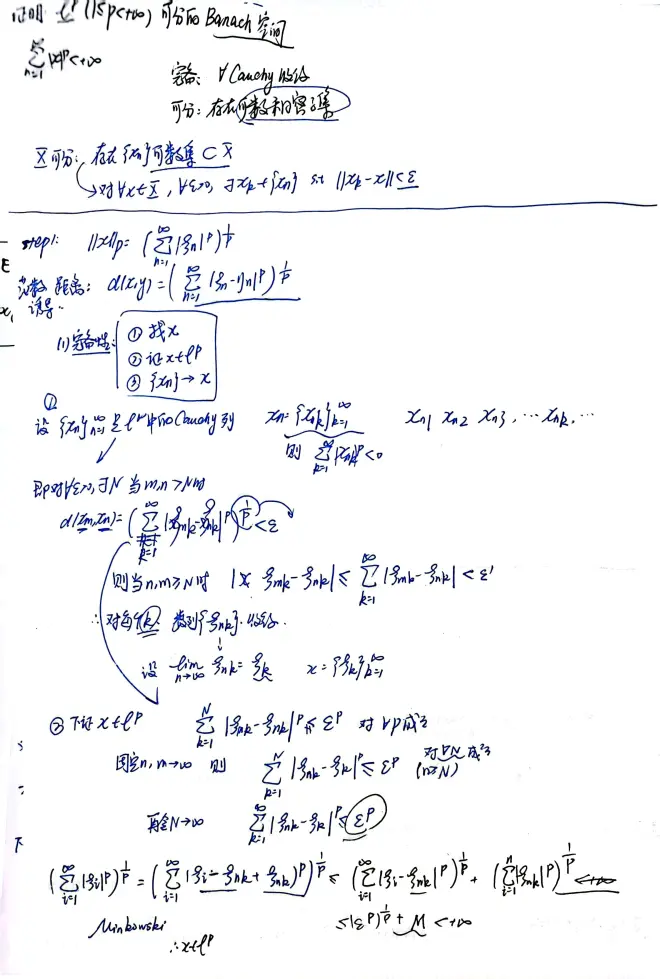 证明 ℓᵖ (1≤p<+∞) 可分的 Banach 空间
∑_{n=1}^{∞} |x|ᵖ<+∞
完备: ∀Cauchy收敛
可分: 存在可数稠密子集
X可分: 存在{xn}可数集⊂X
→对∀x∈X, ∀ε>0, ∃xk∈{xn} st ||xk-x||<ε
step1: ||x||p=(∑_{n=1}^{∞}|ξn|ᵖ)^{1/p}
范数 距离: d(x,y)=(∑_{n=1}^{∞}|ξn-ηn|ᵖ)^{1/p}
诱导.
(1)完备性: ① 找x
② 证x∈ℓᵖ
③ {xn}→x
①
设{xn}_{n=1}^{∞}是ℓᵖ中的Cauchy列 xn={xnk}_{k=1}^{∞} xn1 xn2 xn3, …xnk, …
则 ∑_{k=1}^{∞}|xnk|ᵖ<0
即对∀ε>0,∃N 当m,n>N时
d(xm,xn)=(∑_{k=1}^{∞}|ξmk-ξnk|ᵖ)^{1/p}<ε
则当n,m≥N时 |ξmk-ξnk|≤∑_{k=1}^{∞}|ξmk-ξnk|<ε'
∴对每个k, 数列{ξnk}收敛.
设 lim_{n→∞} ξnk=ξk x={ξk}_{k=1}^{∞}
② 下证x∈ℓᵖ ∑_{k=1}^{N}|ξmk-ξnk|ᵖ≤εᵖ 对∀p成立
固定n, m→∞ 则 ∑_{k=1}^{N}|ξnk-ξk|ᵖ≤εᵖ 对∀N成立
(n≥N)
再令N→∞ ∑_{k=1}^{∞}|ξnk-ξk|ᵖ≤εᵖ
(∑_{i=1}^{∞}|ξi|ᵖ)^{1/p}=(∑_{i=1}^{∞}|ξi-ξnk+ξnk)ᵖ)^{1/p}≤(∑_{i=1}^{∞}|ξi-ξnk|ᵖ)^{1/p}+(∑_{i=1}^{n}|ξnk|ᵖ)^{1/p}<+∞
Minkowski ≤(εᵖ)^{1/p}+M<+∞
∴x∈ℓᵖ